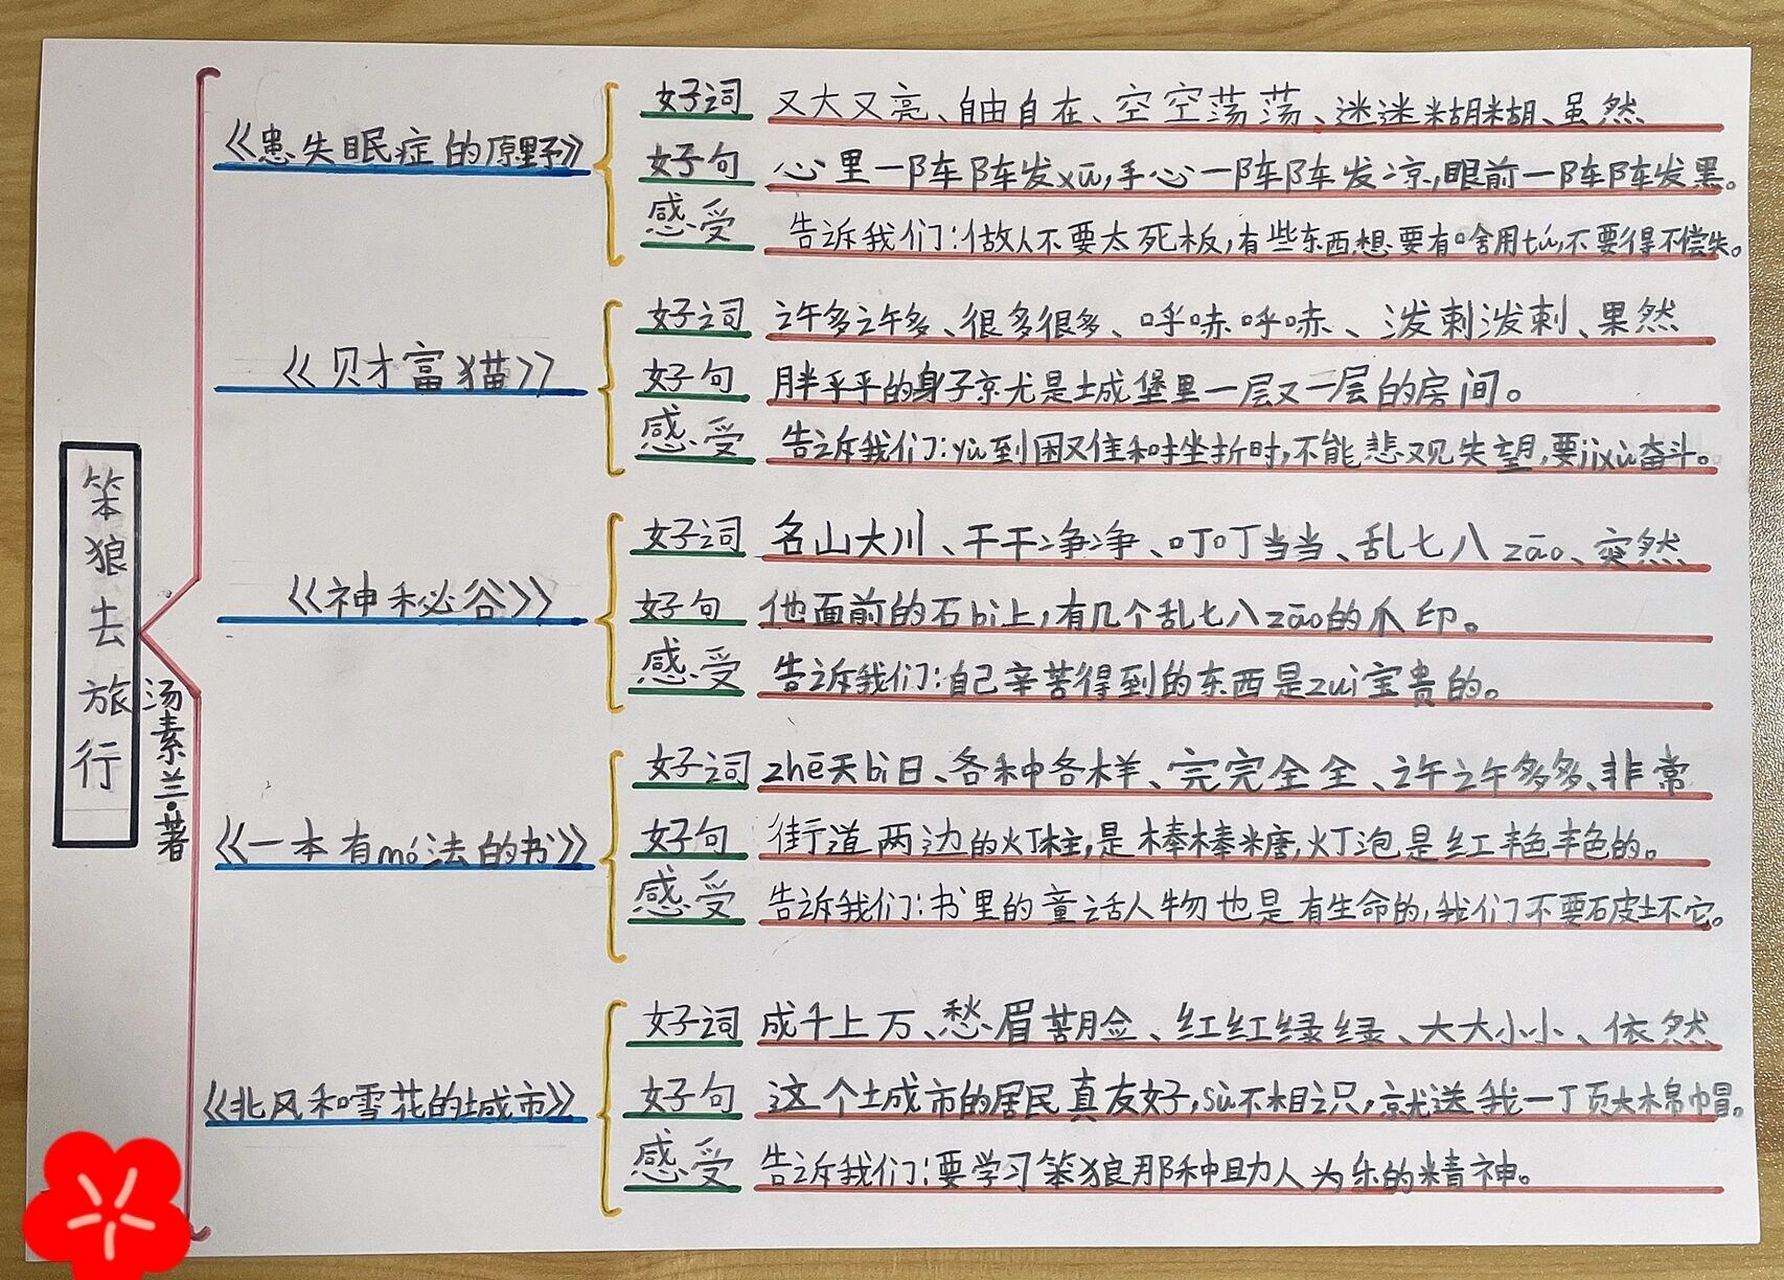 笨狼去旅行
汤素兰·著
《患失眠症的原野》
好词 又大又亮、自由自在、空空荡荡、迷迷糊糊、虽然
好句 心里一阵阵发xū,手心一阵阵发凉,眼前一阵阵发黑。
感受 告诉我们:做人不要太死板,有些东西想要有啥用tú,不要得不偿失。
《财富猫》
好词 许多许多、很多很多、呼哧呼哧、泼剌泼剌、果然
好句 胖乎乎的身子就是城堡里一层又一层的房间。
感受 告诉我们:yù到困难和挫折时,不能悲观失望,要jìxù奋斗。
《神秘谷》
好词 名山大川、干干净净、叮叮当当、乱七八zāo、突然
好句 他面前的石bì上,有几个乱七八zāo的爪印。
感受 告诉我们:自己辛苦得到的东西是zuì宝贵的。
《一本有mó法的书》
好词 zhē天bì日、各种各样、完完全全、许许多多、非常
好句 街道两边的灯柱,是棒棒糖,灯泡是红艳艳的。
感受 告诉我们:书里的童话人物也是有生命的,我们不要破坏它。
《北风和雪花的城市》
好词 成千上万、愁眉苦脸、红红绿绿、大大小小、依然
好句 这个城市的居民真友好,sù不相识,就送我一顶大棉帽。
感受 告诉我们:要学习笨狼那种助人为乐的精神。